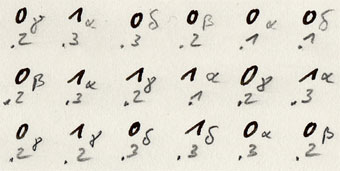 0γ 1α 0δ 0β 0α 0δ
.2 .3 .3 .2 .1 .1
0β 1α 1γ 1α 0γ 1α
.2 .3 .2 .1 .2 .3
0γ 1γ 0δ 1δ 0α 0β
.2 .2 .3 .3 .3 .2